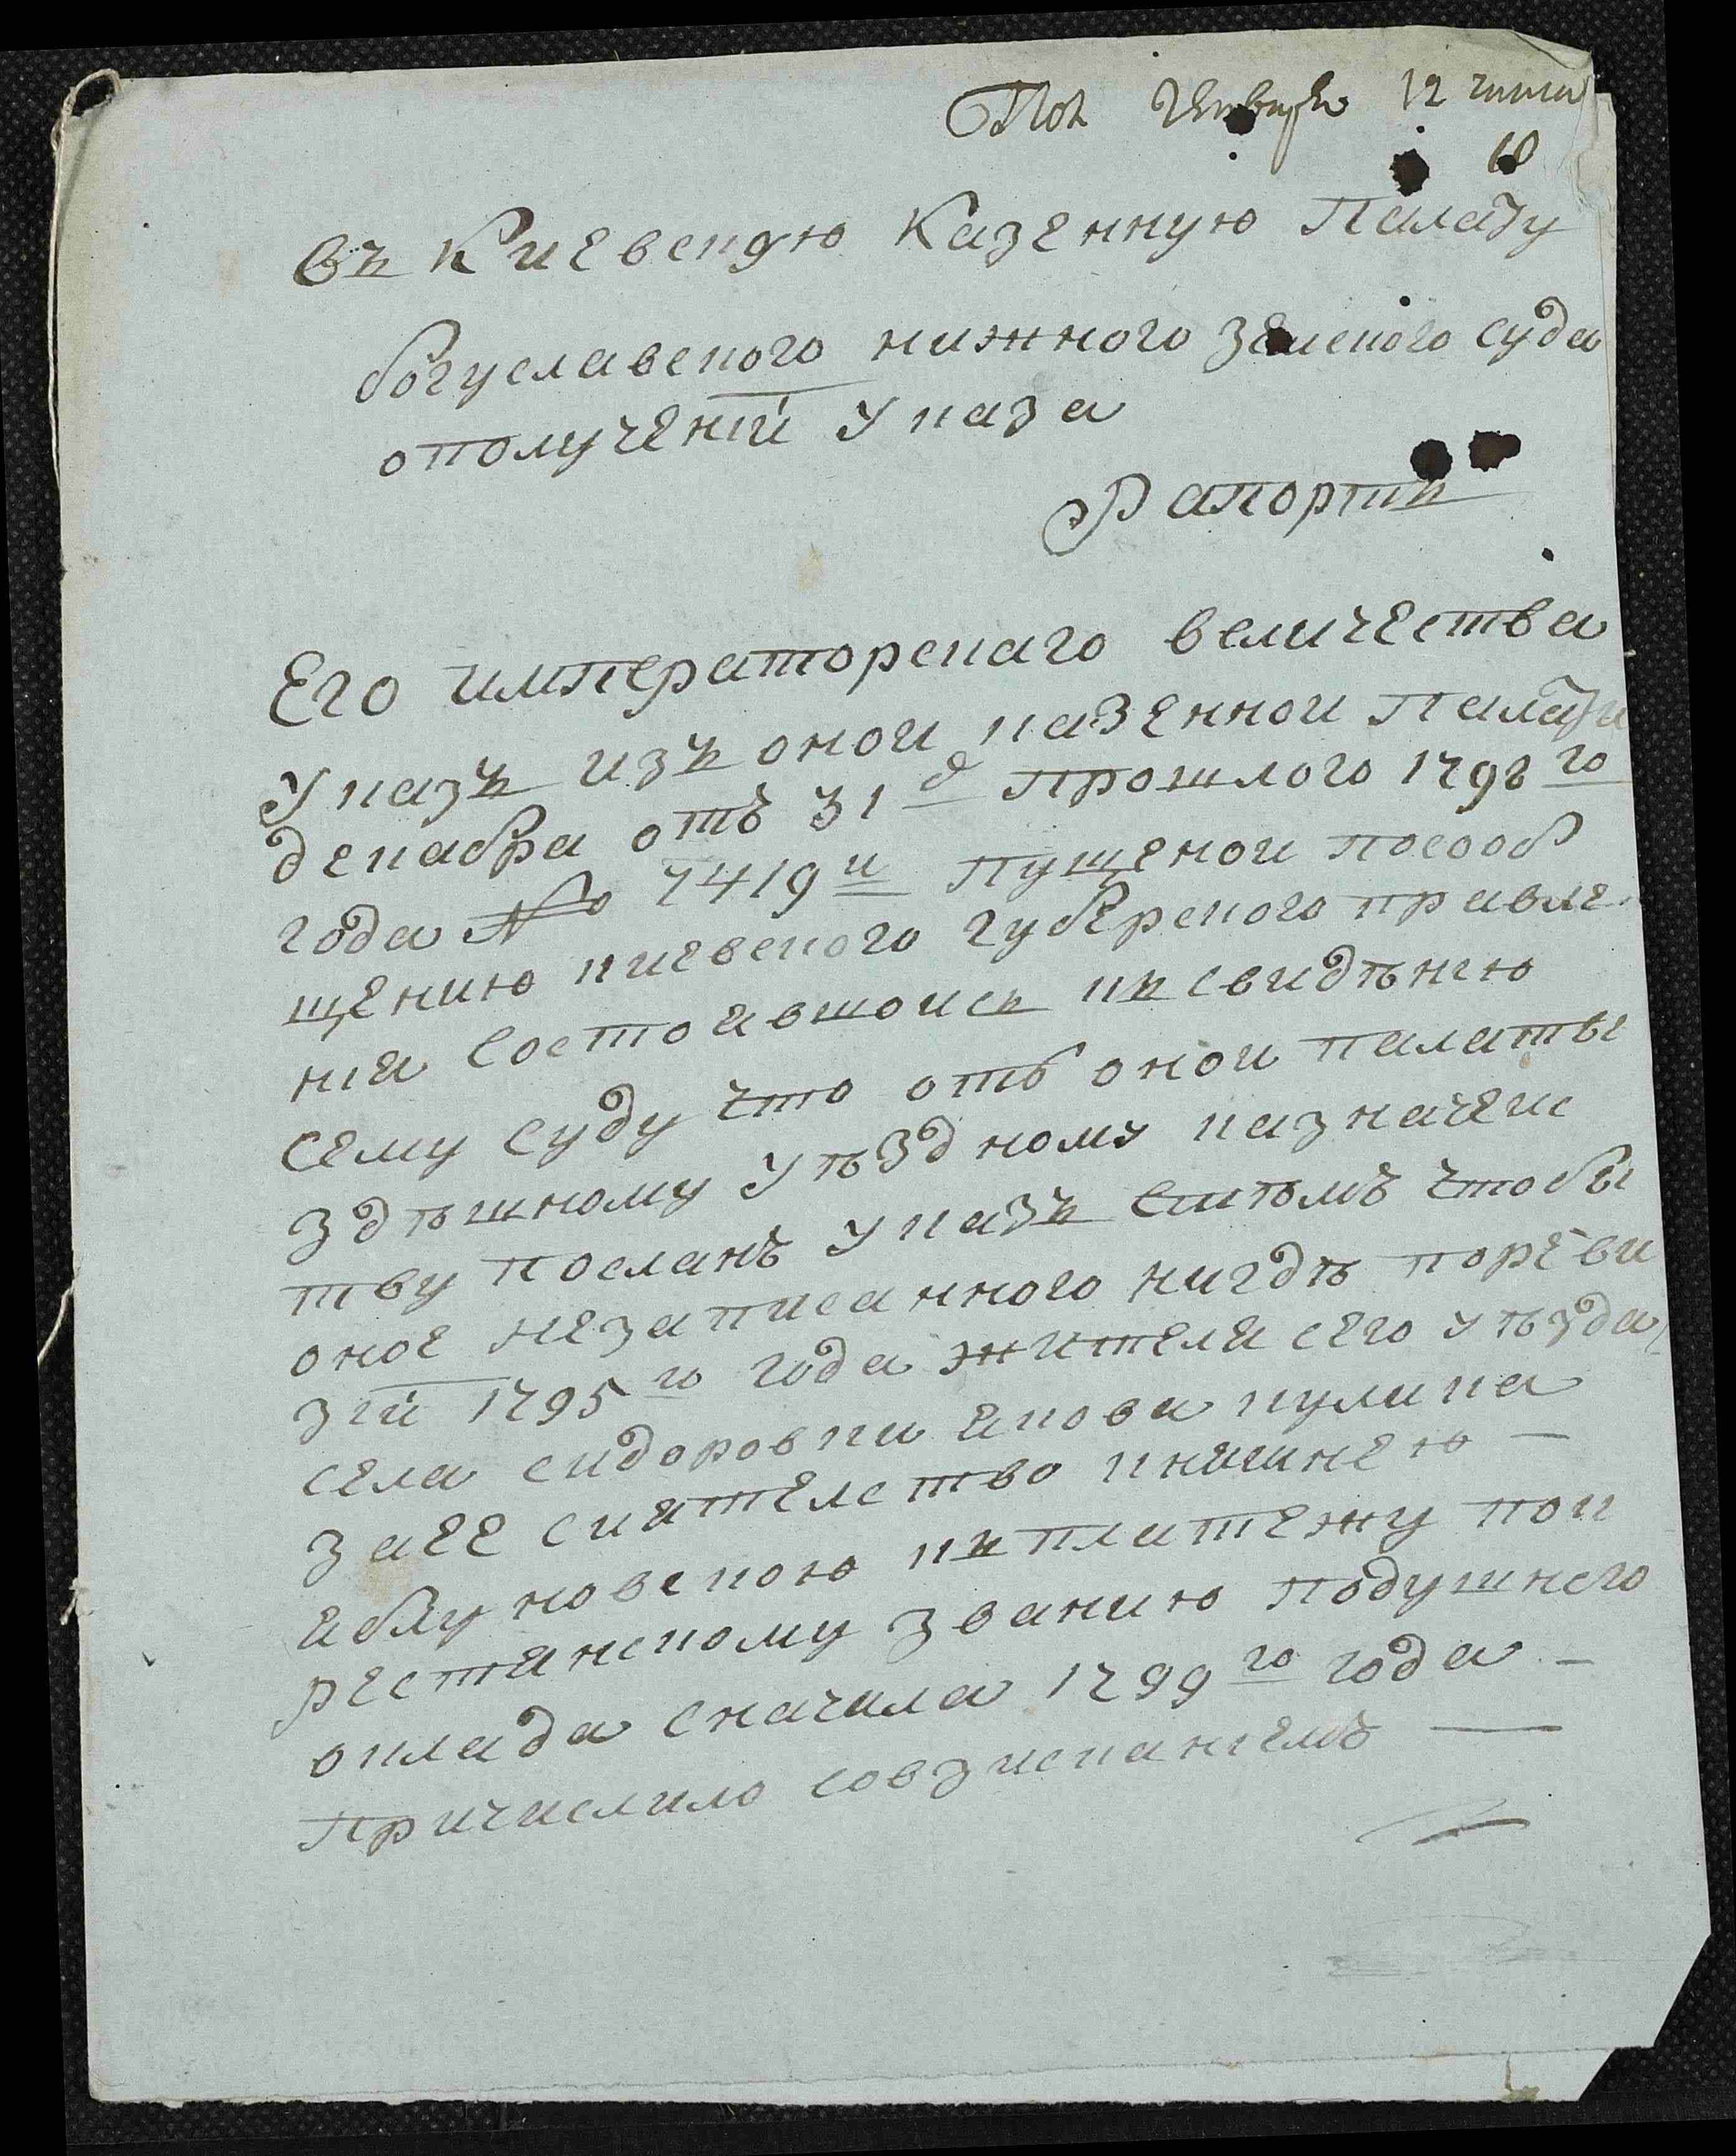 Пол Генваря 12 числа
въ Киевскую Казенную Палату
богуславского нижного Земского суда
ополученїй Указа
Рапортъ
Его императорскаго величества
Указъ изъ оной казенной Палати
декабра отъ 31 д прошлого 1798 го
года No 7419 и Пущеной посооб
щению киевского губерского правле
нїя состоявшойсь къ свидѣнїю
сему суду что отъ оной палаты
здѣшному уѣздному казначейс
тву посланъ указъ стѣмъ чтобы
оное незаписанного нигдѣ порѣви
зїй 1795 го года жителя сего уѣзда
села сидоровки якова кулика
заее сиятелство княинею
яблуновскою къ платежу пок
рестянскому званию подушнего
оклада сначала 1799 го года
причислило совзисканїемъ